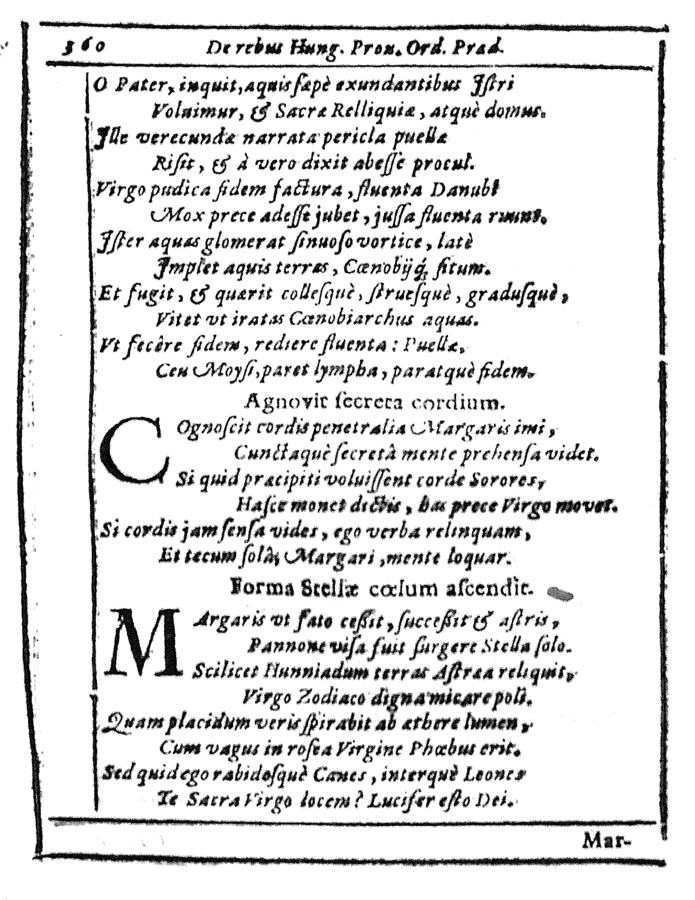 360 De rebus Hung. Prou. Ord. Præd.
O Pater, inquit, aquis sæpè exundantibus Istri
Voluimur, & Sacræ Relliquiæ, atquè domus.
Ille verecundæ narrata pericla puellæ
Risit, & à vero dixit abesse procul.
Virgo pudica fidem factura, fluenta Danubî
Mox prece adesse jubet, jussa fluenta ruunt.
Ister aquas glomerat sinuoso vortice, latè
Implet aquis terras, Cœnobijq́; situm.
Et fugit, & quærit collesquè, struesquè, gradusquè,
Vitet vt iratas Cœnobiarchus aquas.
Vt fecêre fidem, rediere fluenta: Puellæ,
Ceu Moysi, paret lympha, paratquè fidem.
Agnovit secreta cordium.
COgnoscit cordis penetralia Margaris imi,
Cunctaquè secretâ mente prehensa videt.
Si quid præcipiti voluissent corde Sorores,
Hasce monet dictis, has prece Virgo movet.
Si cordis jam sensa vides, ego verba relinquam,
Et tecum solâ, Margari, mente loquar.
Forma Stellæ cœlum ascendit.
MArgaris vt fato cessit, successit & astris,
Pannone visa fuit surgere Stella solo.
Scilicet Hunniadum terras Astræa reliquit,
Virgo Zodiaco digna micare poli.
Quam placidum veris spirabit ab æthere lumen,
Cum vagus in rosea Virgine Phœbus erit.
Sed quid ego rabidosquè Canes, interquè Leones
Te Sacra Virgo locem? Lucifer esto Dei.
Mar-